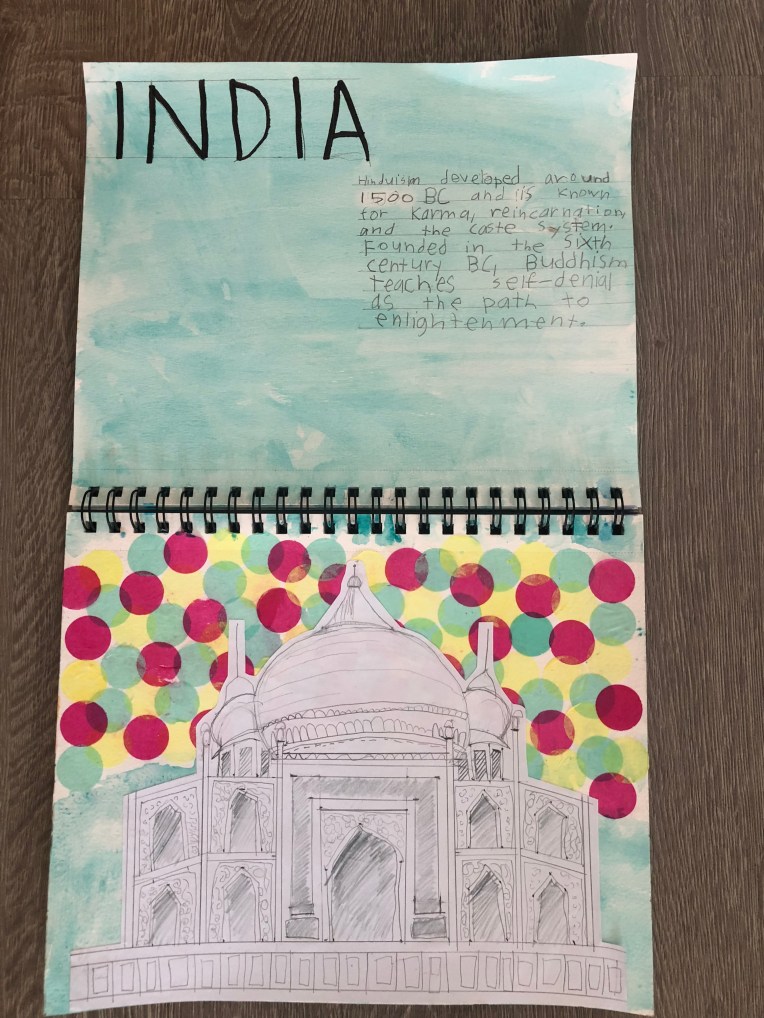 INDIA
Hinduism developed around
1500 BC and is known
for Karma, reincarnation,
and the caste system.
Founded in the Sixth
century BC, Buddhism
teaches self-denial
as the path to
enlightenment.